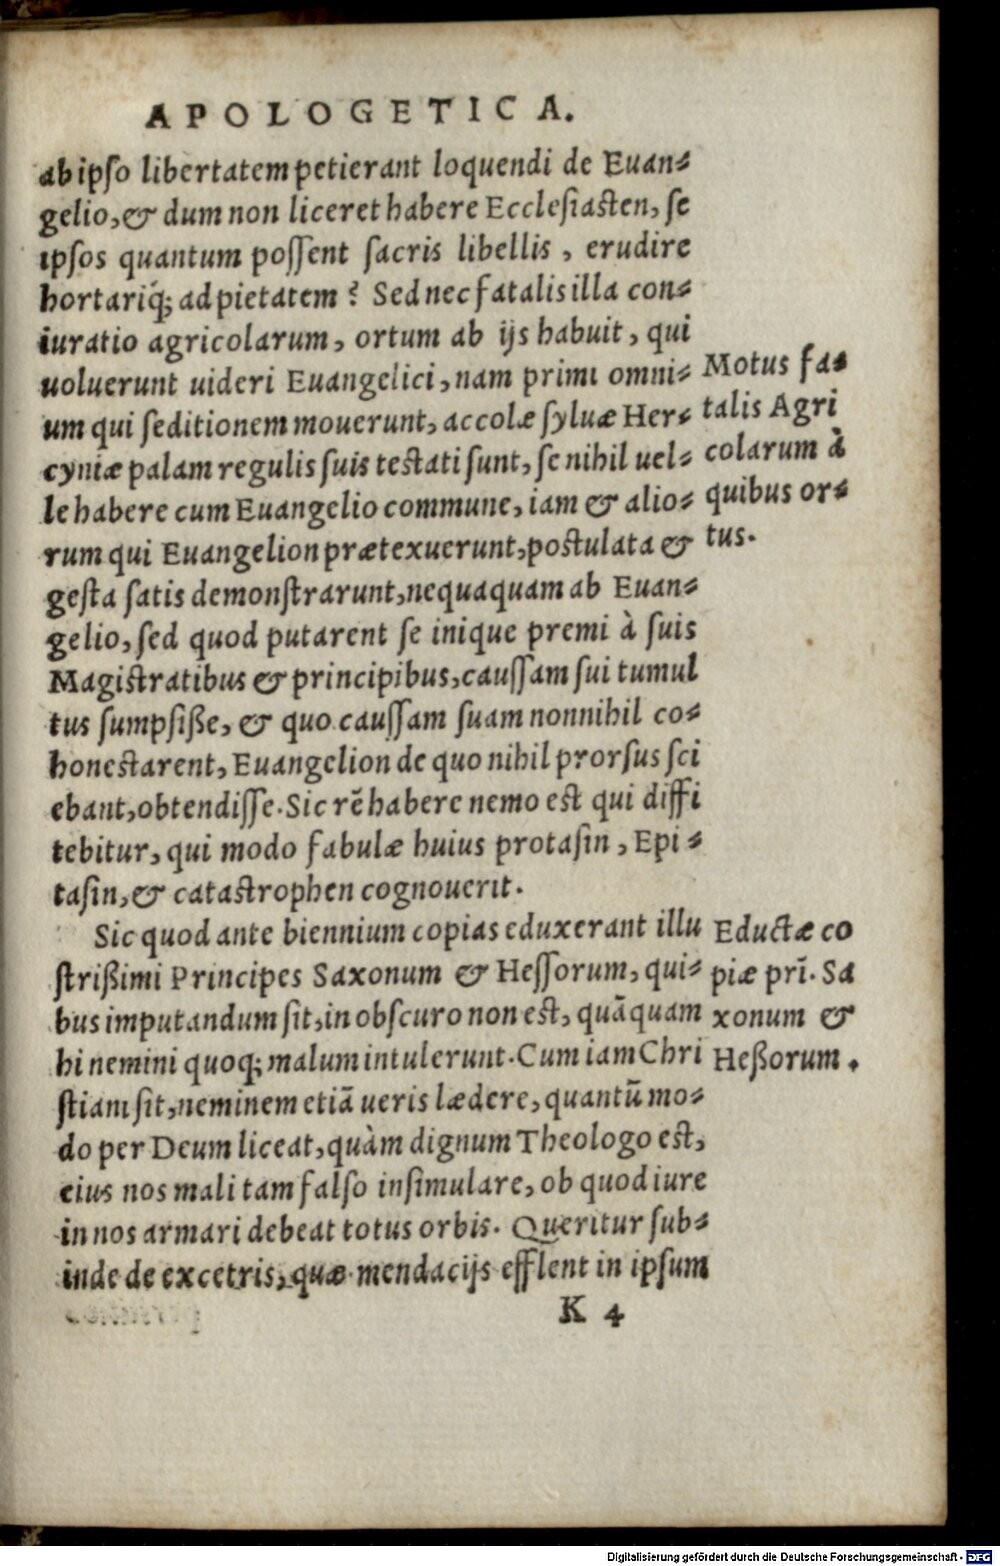 APOLOGETICA.
ab ipso libertatem petierant loquendi de Euan-
gelio, & dum non liceret habere Ecclesiasten, se
ipsos quantum possent sacris libellis, erudire
hortariq́; ad pietatem? Sed nec fatalis illa con-
iuratio agricolarum, ortum ab ijs habuit, qui
uoluerunt uideri Euangelici, nam primi omni-
um qui seditionem mouerunt, accolæ syluæ Her-
cyniæ palam regulis suis testati sunt, se nihil uel-
le habere cum Euangelio commune, iam & alio-
rum qui Euangelion prætexuerunt, postulata &
gesta satis demonstrarunt, nequaquam ab Euan-
gelio, sed quod putarent se inique premi à suis
Magistratibus & principibus, caussam sui tumul
tus sumpsiße, & quo caussam suam nonnihil co-
honestarent, Euangelion de quo nihil prorsus sci
ebant, obtendisse. Sic rē habere nemo est qui diffi
tebitur, qui modo fabulæ huius protasin, Epi-
tasin, & catastrophen cognouerit.
Sic quod ante biennium copias eduxerant illu
strißimi Principes Saxonum & Hessorum, qui-
bus imputandum sit, in obscuro non est, quāquam
hi nemini quoq; malum intulerunt. Cum iam Chri
stiani sit, neminem etiā ueris lædere, quantū mo-
do per Deum liceat, quàm dignum Theologo est,
eius nos mali tam falso insimulare, ob quod iure
in nos armari debeat totus orbis. Queritur sub-
inde de excetris, quæ mendacijs efflent in ipsum
K 4
Motus fa-
talis Agri
colarum à
quibus or-
tus.
Eductæ co
piæ prī. Sa
xonum &
Heßorum.
Digitalisierung gefördert durch die Deutsche Forschungsgemeinschaft - DFG